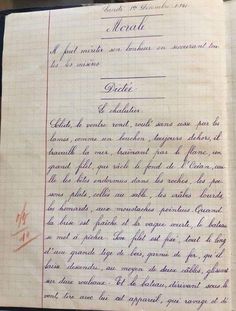 Lundi 1er Décembre
Morale
Il faut mériter son bonheur en secourant tou-
tes les misères
Dictée
Le chalutier.
Solide, le ventre rond, roulé sans cesse par les
lames, comme un bouchon, toujours dehors, il
travaille la mer, traînant par le flanc, un
grand filet, qui râcle le fond de l'Océan, cueil-
le les bêtes endormies dans les roches, les pois-
sons plats, collés au sable, les crabes lourds,
les homards, aux moustaches pointues. Quand
la brise est fraîche et la vague courte, le bateau
se met à pêcher. Son filet est fixé, tout le long
d'une grande tige de bois, garnie de fer, qu'il
laisse descendre, au moyen de deux câbles, glissant
sur deux rouleaux. Et le bateau, dérivant sous le
vent, tire avec lui cet appareil, qui ravage et dé-